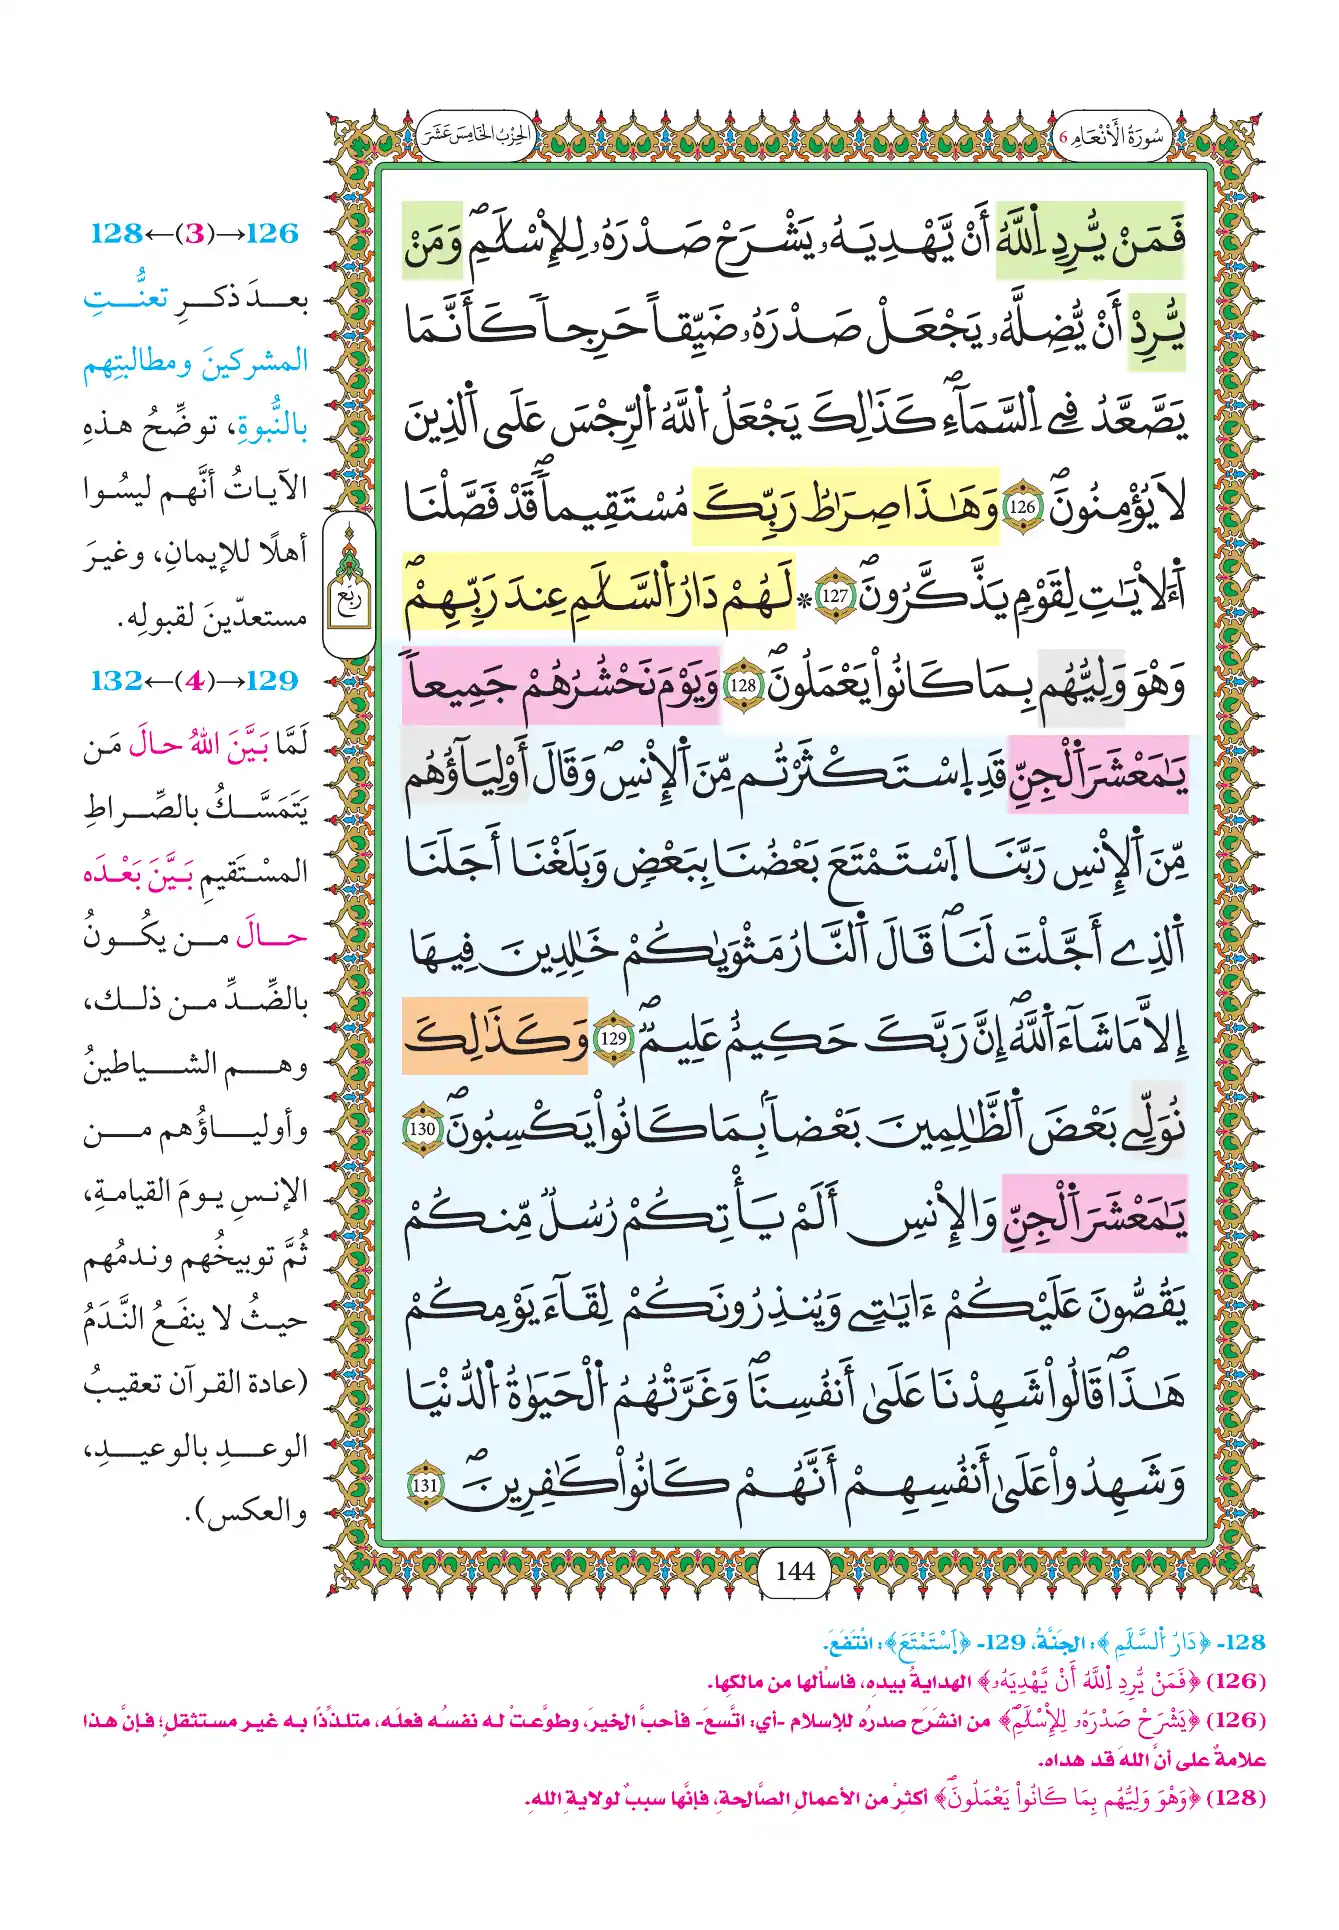 سُورَةُ الْأَنْعَامِ 6
الحِزْبُ الخَامِسَ عَشَرَ
فَمَنْ يُّرِدِ اِ۬للَّهُ أَنْ يَّهْدِيَهُۥ يَشْرَحْ صَدْرَهُۥ لِلِاسْلَٰمِۖ وَمَنْ
يُّرِدْ أَنْ يُّضِلَّهُۥ يَجْعَلْ صَدْرَهُۥ ضَيِّقاً حَرِجاً كَأَنَّمَا
يَصَّعَّدُ فِے اِ۬لسَّمَآءِۖ كَذَٰلِكَ يَجْعَلُ اُ۬للَّهُ اُ۬لرِّجْسَ عَلَي اَ۬لذِينَ
لَا يُؤْمِنُونَۖ 126 وَهَٰذَا صِرَٰطُ رَبِّكَ مُسْتَقِيماًۖ قَدْ فَصَّلْنَا
اَ۬لَايَٰتِ لِقَوْمٍ يَذَّكَّرُونَۖ 127 * لَهُمْ دَارُ اُ۬لسَّلَٰمِ عِندَ رَبِّهِمْۖ
وَهُوَ وَلِيُّهُم بِمَا كَانُواْ يَعْمَلُونَۖ 128 وَيَوْمَ نَحْشُرُهُمْ جَمِيعاًۖ
يَٰمَعْشَرَ اَ۬لْجِنِّ قَدِ اِ۪سْتَكْثَرْتُم مِّنَ اَ۬لِانسِۖ وَقَالَ أَوْلِيَآؤُهُم
مِّنَ اَ۬لِانسِ رَبَّنَا اَ۪سْتَمْتَعَ بَعْضُنَا بِبَعْضٍ وَبَلَغْنَا أَجَلَنَا
اَ۬لذِے أَجَّلْتَ لَنَاۖ قَالَ اَ۬لنَّارُ مَثْوَيٰكُمْ خَٰلِدِينَ فِيهَا
إِلَّا مَا شَآءَ اَ۬للَّهُۖ إِنَّ رَبَّكَ حَكِيمٌ عَلِيمٌۖ 129 وَكَذَٰلِكَ
نُوَلِّے بَعْضَ اَ۬لظَّٰلِمِينَ بَعْضاًۢ بِمَا كَانُواْ يَكْسِبُونَۖ 130
يَٰمَعْشَرَ اَ۬لْجِنِّ وَالِانسِ أَلَمْ يَأْتِكُمْ رُسُلٌ مِّنكُمْ
يَقُصُّونَ عَلَيْكُمْ ءَايَٰتِے وَيُنذِرُونَكُمْ لِقَآءَ يَوْمِكُمْ
هَٰذَاۖ قَالُواْ شَهِدْنَا عَلَىٰ أَنفُسِنَاۖ وَغَرَّتْهُمُ اُ۬لْحَيَوٰةُ اُ۬لدُّنْيَا
وَشَهِدُواْ عَلَىٰ أَنفُسِهِمْ أَنَّهُمْ كَانُواْ كَٰفِرِينَۖ 131
144
رُبُع
126→(3)←128
بعدَ ذكرِ تعنُّتِ
المشركينَ ومطالبتِهم
بالنُّبوةِ، توضِّحُ هذهِ
الآياتُ أنَّهم ليسُوا
أهلًا للإيمانِ، وغيرَ
مستعدّينَ لقبولِه.
129→(4)←132
لَمَّا بَيَّنَ اللهُ حالَ مَن
يَتَمَسَّكُ بالصِّراطِ
المسْتَقيمِ بَيَّنَ بَعْدَه
حالَ من يكُونُ
بالضِّدِّ من ذلك،
وهم الشياطينُ
وأولياؤُهم من
الإنسِ يومَ القيامةِ،
ثُمَّ توبيخُهم وندمُهم
حيثُ لا ينفَعُ النَّدَمُ
(عادة القرآن تعقيبُ
الوعدِ بالوعيدِ،
والعكس).
128- ﴿دَارُ اُ۬لسَّلَٰمِ﴾: الجنَّةُ، 129- ﴿اَ۪سْتَمْتَعَ﴾: انْتَفَعَ.
(126) ﴿فَمَنْ يُّرِدِ اِ۬للَّهُ أَنْ يَّهْدِيَهُۥ﴾ الهدايةُ بيدهِ، فاسألها من مالكِها.
(126) ﴿يَشْرَحْ صَدْرَهُۥ لِلِاسْلَٰمِۖ﴾ من انشَرَحَ صدرُه للإسلام -أي: اتَّسعَ- فأحبَّ الخيرَ، وطوَّعتْ له نفسُه فعلَه، متلذِّذًا به غير مستثقلٍ؛ فإنَّ هذا
علامةٌ على أنَّ اللهَ قد هداه.
(128) ﴿وَهُوَ وَلِيُّهُم بِمَا كَانُواْ يَعْمَلُونَۖ﴾ أكثِرْ من الأعمالِ الصَّالحةِ، فإنَّها سببٌ لولايةِ اللهِ.